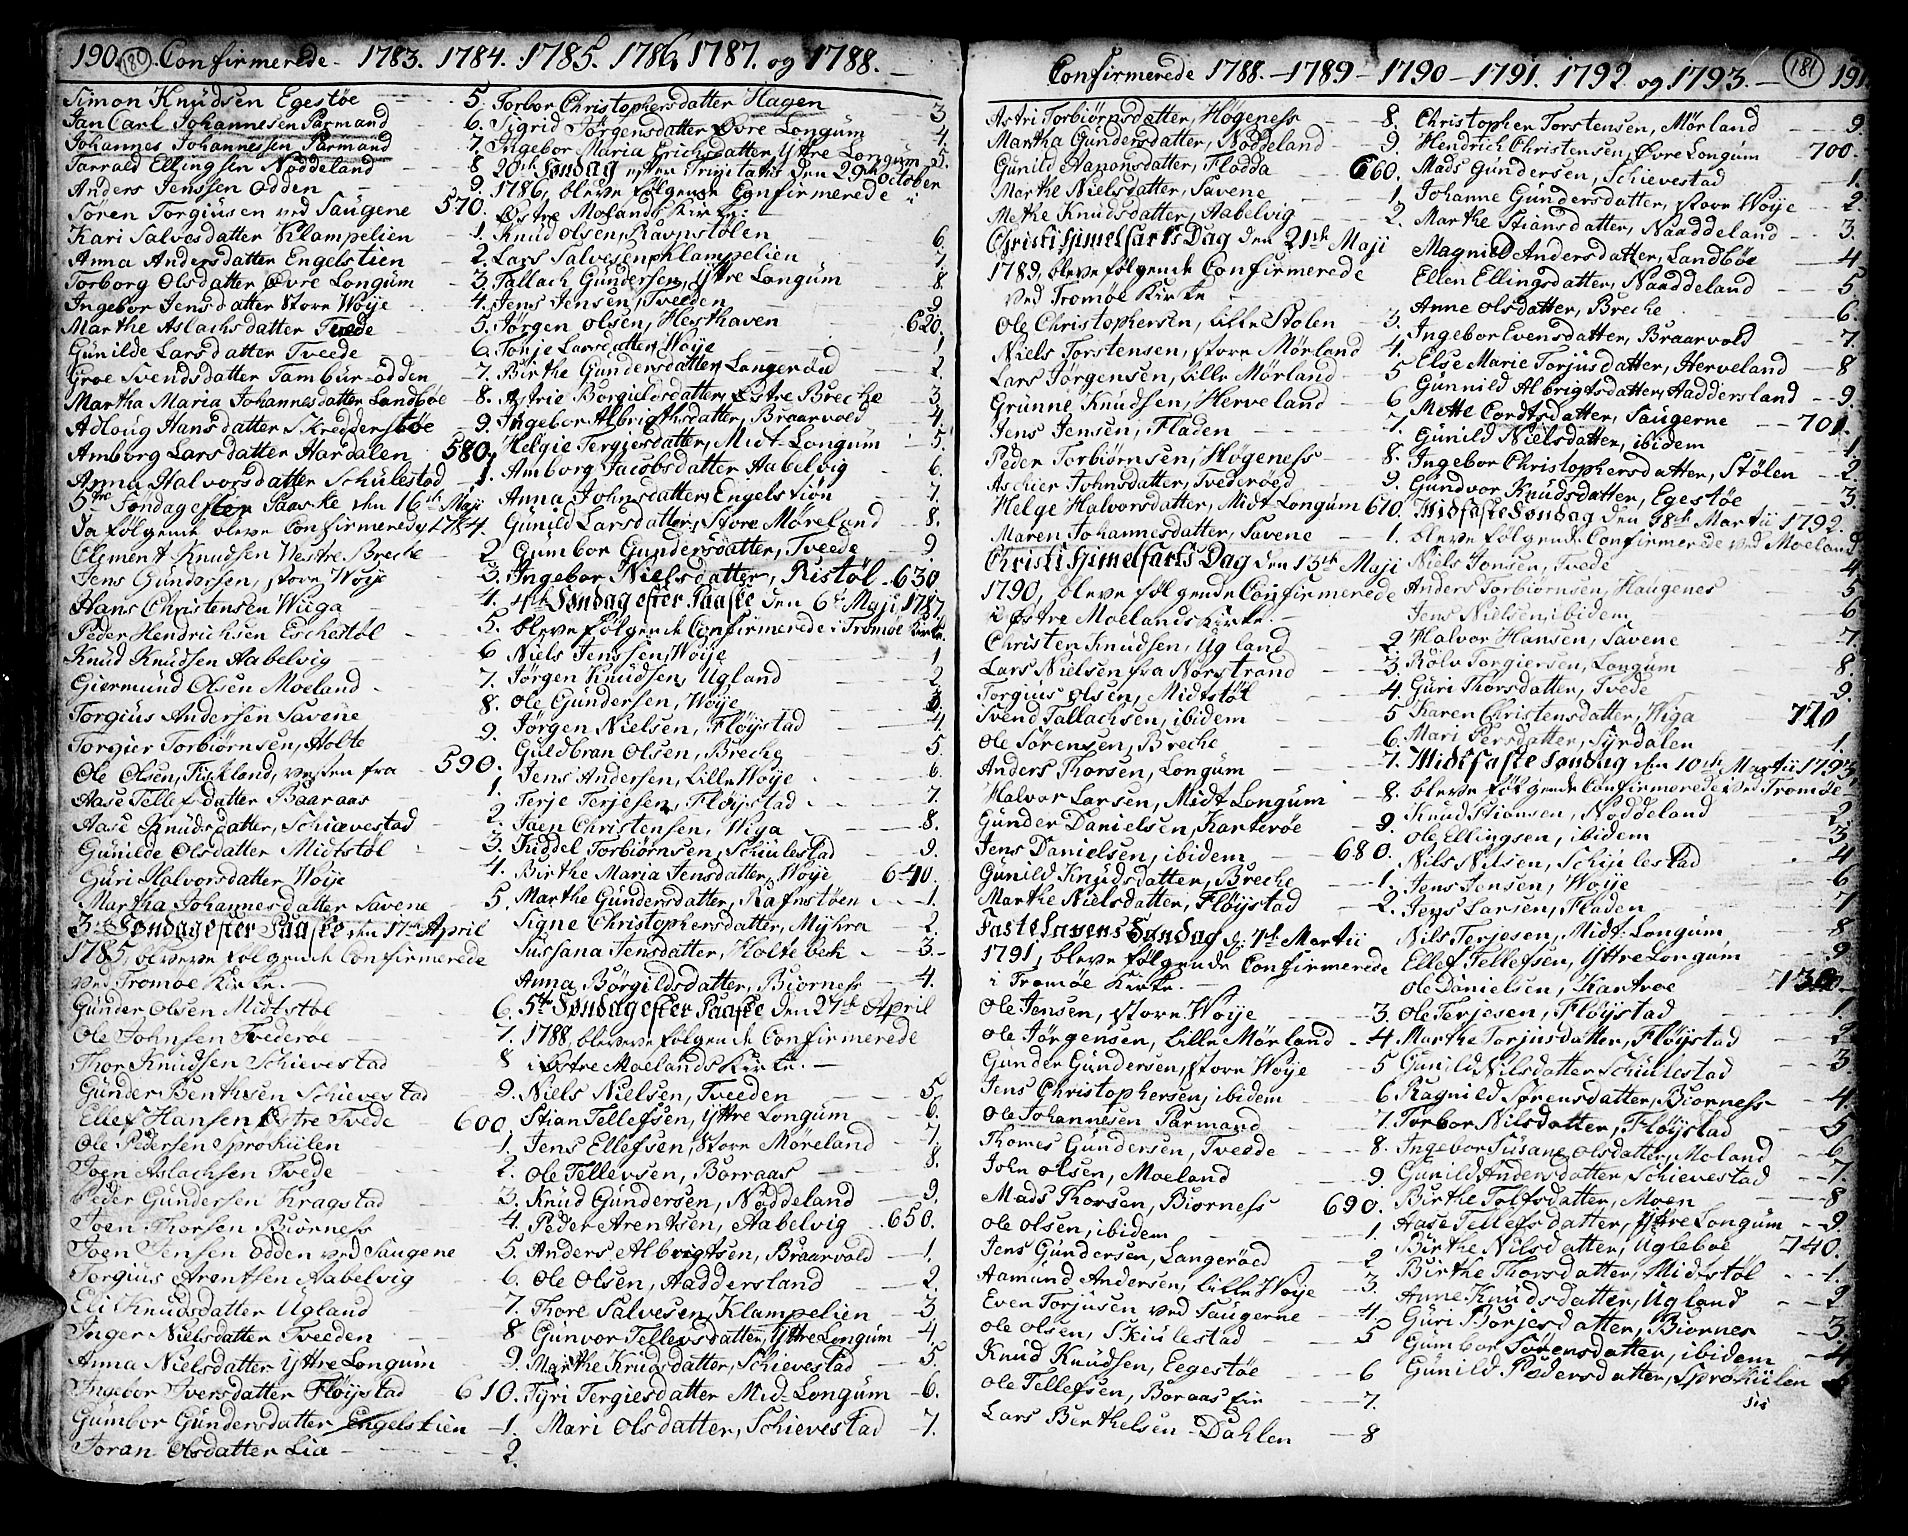 190. (180) Confirmerede - 1783. 1784. 1785. 1786. 1787. og 1788.
Simon Knudsen Egestøe - 5.
Jan Carl Johannesen Parmand - 6.
Johannes Johannessen Parmand - 7.
Tarrald Ellingsen Noddeland - 8
Anders Jenssen Odden - 9.
Søren Torgiusen ved Saugene 570.
Kari Salvesdatter Klampelien - 1.
Anna Andersdatter Engelstien - 2.
Torborg Olsdatter Øvre Longum - 3.
Ingebor Jensdatter store Woije - 4.
Marthe Aslachsdatter Tvede - 5.
Gunilde Larsdatter Tveede - 6.
Groe Svendsdatter Tambur-odden - 7.
Martha Maria Johannesdatter Landbøe - 8.
Adloug Hansdatter Skredderstøe - 9.
Amborg Larsdatter Hardalen 580.
Anna Halvorsdatter Schulestad - 1.
5te Søndag efter Paaske den 16de Maji
da følgende bleve Confirmerede 1784.
Clement Knudsen Vestre Breche - 2
Jens Gundersen, store Woije - 3.
Hans Christensen Wiiga - 4.
Peder Hendrichsen Eschestøl - 5.
Knud Knudsen Aabelvig - 6
Giermund Olsen Moeland - 7.
Torgius Andersen Savene - 8.
Torgier Torbiørnsen, Holte - 9.
Ole Olsen, Fiskland, vesten fra - 590.
Aase Tellefsdatter Baaraas - 1.
Aase Knudsdatter, Schiævestad - 2.
Gunilde Olsdatter Midtstøl - 3.
Guri Halvorsdatter Woije - 4.
Martha Johannesdatter Savene - 5.
3die Søndag efter Paaske den 17de April
1785, bleve følgende Confirmerede
ved Tromøe Kirke. -
Gunder Olsen Midtstøl - 6.
Ole Johnsen Tvederøe - 7.
Thor Knudsen Schievestad - 8
Gunder Benthsen Schievestad - 9.
Ellef Hansen Østre Tvede 600.
Ole Pedersen Sprokiilen - 1.
Joen Aslachsen Tvede - 2.
Peder Gundersen Kragstad - 3.
Joen Thorsen Biorness - 4.
Joen Jensen Odden ved Saugene - 5.
Torgius Arentsen Aabelvig - 6.
Eli Knudsdatter Ugland - 7.
Inger Nielsdatter Tveden - 8
Anna Nielsdatter Yttre Longum - 9.
Ingebor Iversdatter Fløystad - 610.
Gumbor Gundersdatter Engelstien - 1.
Joran Olsdatter Lia - 2.
Torbor Christophersdatter Hagen - 3
Sigrid Jørgensdatter Øvre Longum - 4
Ingebor Maria Erichsdatter Yttre Longum 5.
20de Søndag efter Trinitatis den 29de October
1786, bleve følgende Confirmerede i
Østre Molands Kirke:
Knud Olsen, Ravnstolen - 6.
Lars Salvesen Klampelien - 7
Tallach Gundersen, Yttre Longum - 8.
Jens Jensen, Tveeden - 9
Jørgen Olsen, Hesthaven - 620.
Tonje Larsdatter, Woije - 1
Birthe Gundersdatter, Langerød - 2
Astrie Borgieldsdatter, Østre Breche - 3.
Ingebor Albrigthsdatter, Braarvold - 4.
Helgie Tergiesdatter, Midt Longum - 5.
Amborg Jacobsdatter Aabelvig - 6.
Anna Johnsdatter, Engelstiøn - 7.
Gunild Larsdatter, Store Møreland - 8.
Gumbor Gundersdatter, Tveede - 9.
Ingebor Nielsdatter, Ristøl - 630
4de Søndag efter Paaske den 6te Maji, 1787
bleve følgende Confirmerede i Tromøe Kirke.
Niels Jenssen, Woije - 1
Jørgen Knudsen, Ugland - 2
Ole Gundersen, Woije - 3.
Jørgen Nielsen, Fløystad - 4
Guldbran Olsen, Breche - 5.
Jens Andersen, Lille Woije - 6.
Terje Terjesen, Fløystad - 7.
Jaen Christensen, Wiga - 8.
Kiddel Torbiørnsen, Schiulestad - 9.
Birthe Maria Jensdatter, Woije - 640.
Marthe Gundersdatter, Rafnstøen - 1.
Signe Christophersdatter, Myhra - 2.
Sussana Jensdatter, Holtebek - 3.
Anna, Børgildsdatter, Biorness - 4.
5te Søndag efter Paaske den 27de April
1788, bleve følgende Confirmerede
i Østre Moelands Kirke. -
Niels Nielsen, Tveeden - 5
Stian Tellefsen, Yttre Longum - 6.
Jens Ellefsen, Store Møreland - 7.
Ole Tellevsen, Borraas - 8.
Knud Gundersen, Noddeland - 9.
Peder Arentsen, Aabelvig - 650.
Anders Albrigtsen, Braarvold - 1.
Ole Olsen, Haddersland - 2.
Thore Salvesen, Klampelien - 3
Gunvor Tellevsdatter, Yttre Longum - 4.
Marthe Knudsdatter, Schievestad - 5.
Tyri Tergiesdatter Mid. Longum - 6.
Mari Olsdatter, Schievestad - 7.
Confirmerede 1788. - 1789 - 1790 - 1791. 1792. og 1793. - (181) 191.
Astri Torbiørnsdatter, Høgeness - 8.
Martha Gundersdatter, Noddeland - 9.
Gunild Haaonsdatter, Flodda - 660.
Marthe Nielsdatter, Savene - 1
Methe Knudsdatter, Aabelvig - 2.
Christi Himelfarts Dag den 21de Maji
1789, bleve følgende Confirmerede
ved Tromøe Kirke
Ole Christophersen, Lille Stolen - 3.
Niels Torstensen, store Mørland 4.
Lars Jørgensen, Lille Mørland - 5
Grunne Knudsen, Herveland - 6
Jens Jensen, Fladen - 7.
Peder Torbiørnsen, Høgeness - 8.
Aschier Johnsdatter, Tvederøed - 9.
Helge Halvorsdatter, Midt Longum 670.
Maren Johannesdatter, Savene - 1.
Christi Himelfarts Dag den 13de Maji
1790, bleve følgende Confirmerede
i Østre Moelands Kirke. -
Christen Knudsen, Ugland - 2
Lars Nielsen fra Norstrand - 3.
Torgius Olsen, Midtstøl - 4.
Svend Tallachsen, ibidem - 5
Ole Sørensen, Breche - 6.
Anders Thorsen, Longum - 7.
Halvor Larsen, Midt Longum - 8.
Gunder Danielsen, Karterøe - 9.
Jens Danielsen, ibidem - 680.
Gunild Knudsdatter, Breche - 1.
Marthe Nielsdatter, Fløystad - 2.
Fastelavens Søndag d: 7de Martii
1791, bleve følgende Confirmerede
i Tromøe Kirke. -
Ole Jensen, store Woije - 3.
Ole Jørgensen, Lille Mørland - 4
Gunder Gundersen, store Woije - 5
Jens Christophersen, ibidem - 6
Ole Johannesen Parmand - 7.
Thomes Gundersen, Tveede - 8.
John Olsen, Moeland - 9
Mads Thorsen, Biorness 690.
Ole Olsen, ibidem - 1.
Jens Gundersen, Langerøed - 2
Aamund Andersen, Lille Woije - 3.
Even Torjusen ved Saugerne - 4.
Ole Olsen, Skiulestad - 5
Knud Knudsen, Eegestøe - 6
Ole Tellefsen, Boraas - 7.
Lars Berthelsen Dahlen - 8
Christopher Torstensen, Mørland - 9.
Hendrich Christensen, Øvre Longum - 700.
Mads Gundersen, Schievestad - 1.
Johanne Gundersdatter, store Woije - 2
Marthe Stiansdatter, Naaddeland - 3.
Magnild Andersdatter, Landbøe - 4
Ellen Ellingsdatter, Naaddeland - 5
Anne Olsdatter, Breche - 6.
Ingebor Evensdatter, Braarvold - 7.
Else Marie Torjusdatter, Herveland - 8
Gunnild Albrigtsdatter, Haddersland - 9.
Mette Cordtsdatter, Saugerne - 701.
Gunild Nielsdatter, ibidem - 1
Ingebor Christophersdatter, Stølen - 2.
Gundvor Knudsdatter, Egestøe - 3.
Midfaste Søndag den 18de Martii 1792.
bleve følgende Confirmerede ved Moeland
Niels Jonsen, Tvede - 4
Anders Torbiørnsen, Haugenes - 5
Jens Nielsen, ibidem - 6
Halvor Hansen, Savene - 7.
Rolv Torgiersen, Longum - 8.
Guri Thorsdatter, Tvede - 9.
Karen Christensdatter, Wiga 710
Mari Persdatter, Syrdalen - 1.
Midtfaste Søndag den 10de Martii 1793
bleve følgende Confirmerede ved Tromøe
Knud Stiansen, Noddeland - 2
Ole Ellingsen, ibidem - 3
Nils Nilsen, Schiulestad - 4
Jens Jensen, Woije - 6
Jens Larsen, Fladen - 7
Nils Terjesen, Midt. Longum - 8
Ellef Tellefsen, Yttre Longum - 9.
Ole Danielsen, Kartroe - 730
Ole Terjesen, Fløystad - 1.
Marthe Torjusdatter, Fløystad - 2
Gunild Nilsdatter Schiulestad - 3.
Ragnild Sørensdatter, Biorness - 4.
Torbor Nilsdatter, Fløystad - 5
Ingebor Susane Olsdatter, Moland - 6
Gunild Andersdatter Schievestad - 7.
Birthe Tolfsdatter, Moen - 8
Aase Tellefsdatter, Yttre Longum - 9
Birthe Nilsdatter, Ugleboe 740.
Birthe Thorsdatter, Midtstøl - 1.
Anne Knudsdatter, Ugland - 2
Guri Borjesdatter, Biornes - 3.
Gumbor Sørensdatter, ibidem - 4
Gunild Pedersdatter, Sprokiilen